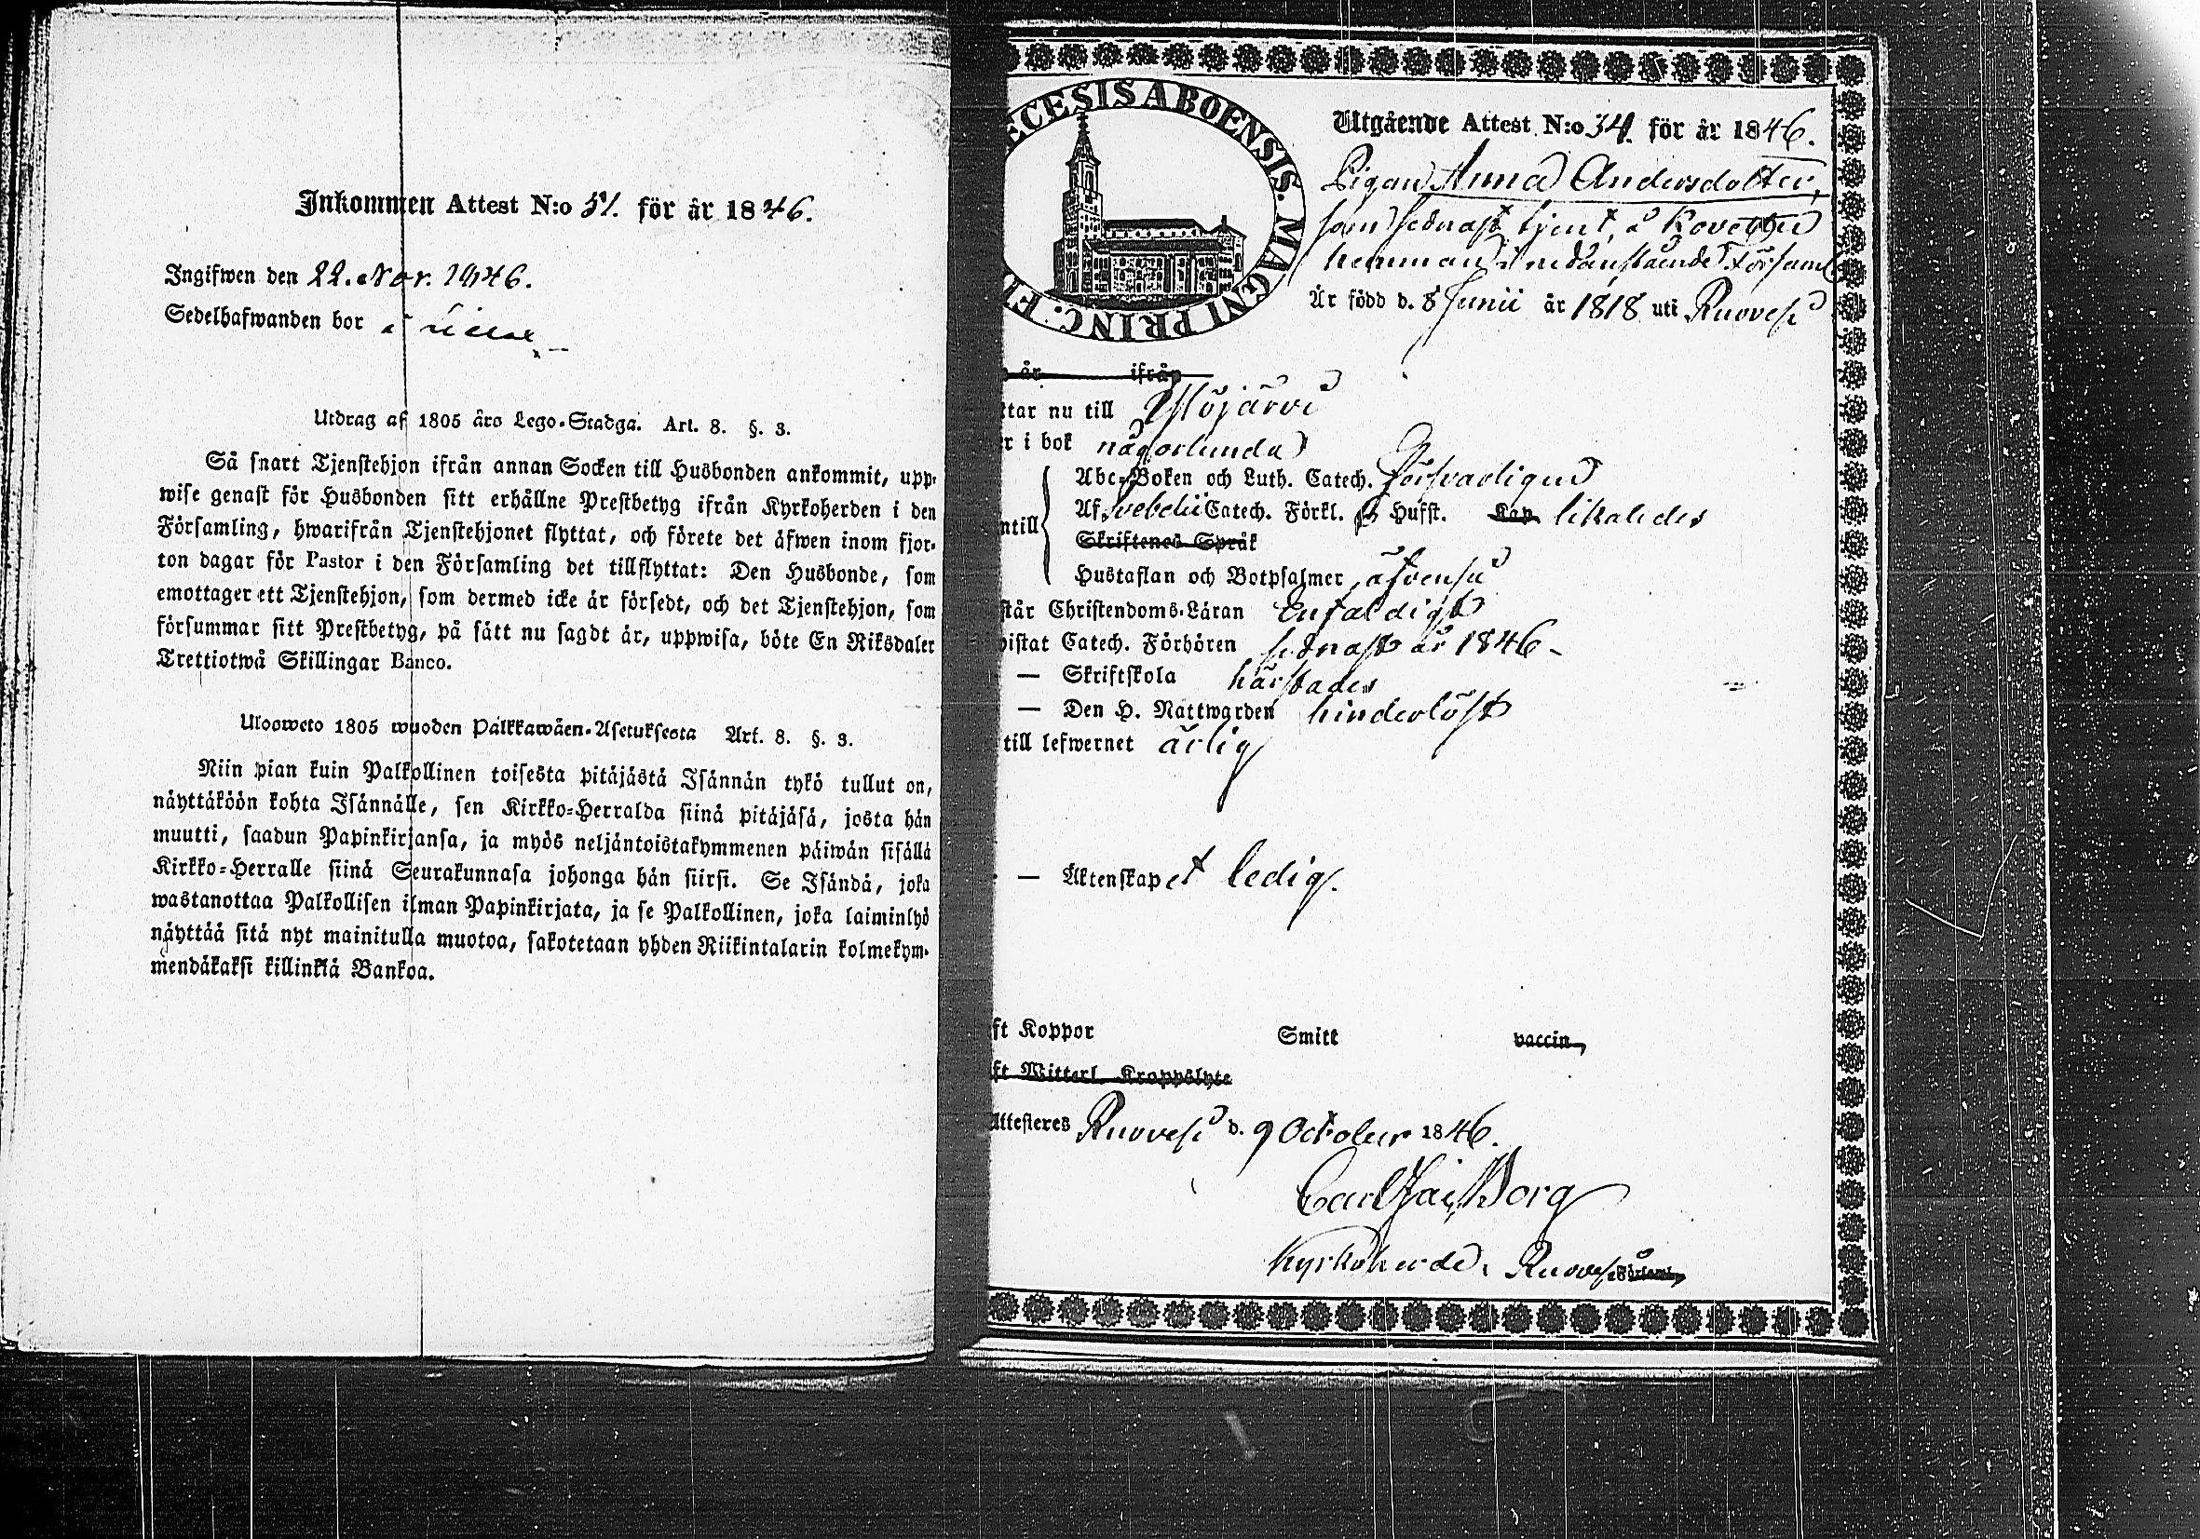 Inkommen Attest N:o 51. för år 1846.
Ingifwen den 22. Nov. 1846.
Sedelhafwanden bor å
Utdrag af 1805 års Lego-Stadga. Art. 8. §. 3.
Så snart Tjenstehjon ifrån annan Socken till Husbonden ankommit, upp-
wise genast för Husbonden sitt erhållne Prestbetyg ifrån Kyrkoherden i den
Församling, hwarifrån Tjenstehjonet flyttat, och förete det äfwen inom fjor-
ton dagar för Pastor i den Församling det tillflyttat: Den Husbonde, som
emottager ett Tjenstehjon, som dermed icke är försedt, och det Tjenstehjon, som
försummar sitt Prestbetyg, på sätt nu sagdt är, uppwisa, böte En Riksdaler
Trettiotwå Skillingar Banco.
Ulosweto 1805 wuoden Palkkawäen-Asetuksesta Art. 8. §. 3.
Niin pian kuin Palkollinen toisesta pitäjästä Isännän tykö tullut on,
näyttäköön kohta Isännälle, sen Kirkko-Herralda siinä pitäjäsä, josta hän
muutti, saadun Papinkirjansa, ja myös neljäntoistakymmenen päiwän sisällä
Kirkko-Herralle siinä Seurakunnasa johonga hän siirsi. Se Isändä, joka
wastanottaa Palkollisen ilman Papinkirjata, ja se Palkollinen, joka laiminlyö
näyttää sitä nyt mainitulla muotoa, sakotetaan yhden Riikintalarin kolmekym-
mendäkaksi killinkiä Bankoa.
ECESIS ABOENSIS. MAGNI PRINC. FI
Utgående Attest N:o 34. för år 1846.
Pigan Anna Andersdotter,
som sednast tjent å
hemman i nedanstående Församl
Är född d. 8 Junii år 1818 uti Ruovesi
år ifrån
ttar nu till Ylöjärvi
r i bok någorlunda
Abc-Boken och Luth. Catech. försvarligen
Af Svebelii Catech. Förkl. Hufst. Kap. likaledes
ntill
Skriftenes Språk
Hustaflan och Botpsalmer äfvenså
står Christendoms-Läran Enfaldigt
wistat Catech. Förhören sednast år 1846 -
— Skriftskola härstädes
— Den H. Nattwarden hinderlöst
till lefwernet ärlig
— Äktenskapet ledig.
ft Koppor Smitt vaccin,
ft Witterl. Kroppslyte
Attesteres Ruovesi d. 9 October 1846.
Carl Borg
Kyrkoherde i Ruovesi Församl.